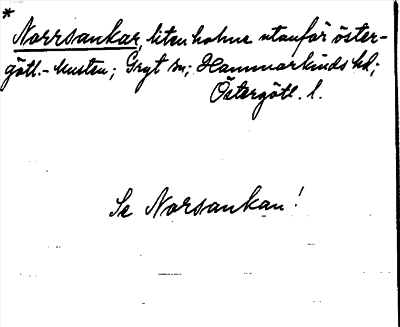 *
Norrsankar, liten holme utanför öster-
götl.-kusten; Gryt sn; Hammarkinds hd;
Östergötl. l.
Se Norsankan!